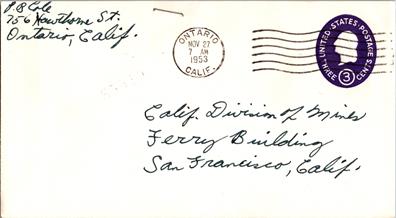 J.B. Cole
756 Hawthorne St.
Ontario, Calif.
ONTARIO
NOV 27
7 AM
1953
CALIF.
UNITED·STATES·POSTAGE
THREE 3 CENTS
Calif. Division of Mines
Ferry Building
San Francisco, Calif.